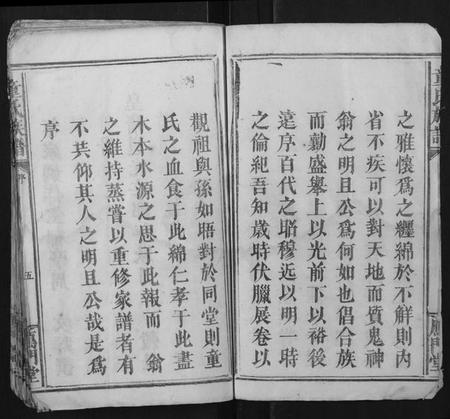 之雅懷爲之纒綿於不觧則内
省不疚可以對天地而質鬼神
翁之明且公爲何如也倡合族
而勷盛舉上以光前下以裕後
遠序百代之昭穆近以明一時
之倫紀吾知歳時伏臘展卷以
觀祖與孫如晤對於同堂則童
氏之血食于此綿仁孝于此盡
木本水源之思于此報而 翁
之維持蒸嘗以重修家譜者有
不共仰其人之明且公哉是爲
序
童氏族譜
序
五
鴈門堂
童氏族譜
鴈門堂